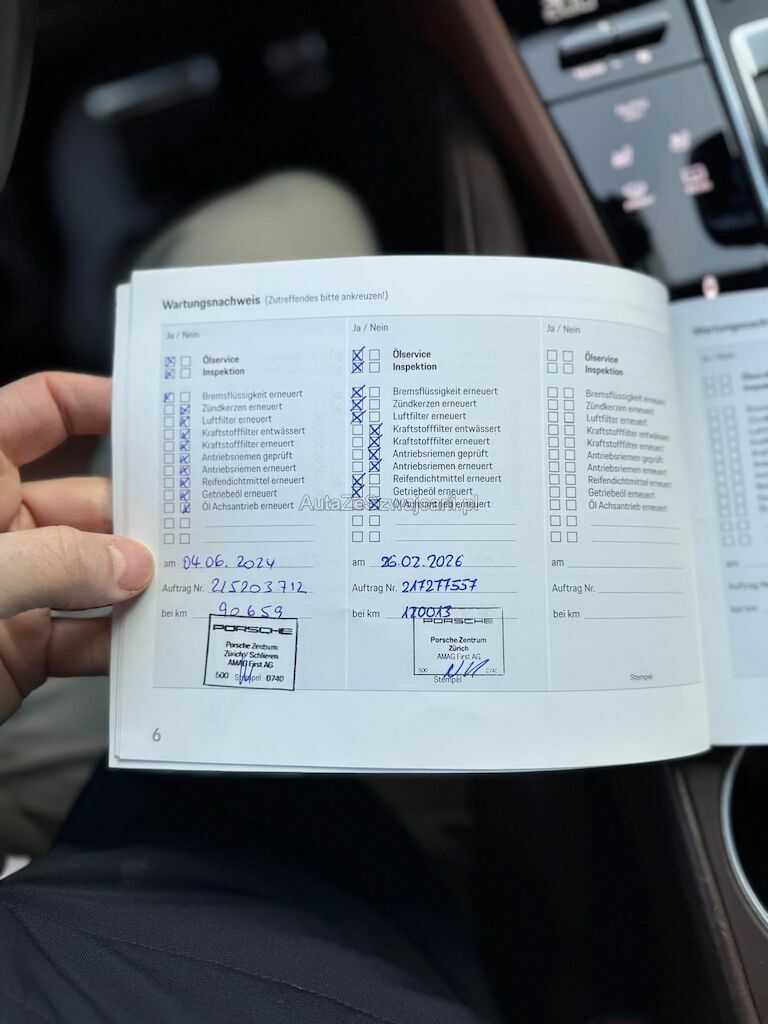 Wartungsnachweis (Zutreffendes bitte ankreuzen!)
Ja / Nein
Ölservice
Inspektion
Bremsflüssigkeit erneuert
Zündkerzen erneuert
Luftfilter erneuert
Kraftstofffilter entwässert
Kraftstofffilter erneuert
Antriebsriemen geprüft
Antriebsriemen erneuert
Reifendichtmittel erneuert
Getriebeöl erneuert
Öl Achsantrieb erneuert
am 04.06.2024
Auftrag Nr. 215203712
bei km 90659
PORSCHE
Porsche Zentrum
Zürich/Schlieren
AMAG First AG
500 Stempel 0740
Ja / Nein
Ölservice
Inspektion
Bremsflüssigkeit erneuert
Zündkerzen erneuert
Luftfilter erneuert
Kraftstofffilter entwässert
Kraftstofffilter erneuert
Antriebsriemen geprüft
Antriebsriemen erneuert
Reifendichtmittel erneuert
Getriebeöl erneuert
Öl Achsantrieb erneuert
am 26.02.2026
Auftrag Nr. 217277557
bei km 120013
PORSCHE
Porsche Zentrum
Zürich
AMAG First AG
500 0740
Stempel
Ja / Nein
Ölservice
Inspektion
Bremsflüssigkeit erneuert
Zündkerzen erneuert
Luftfilter erneuert
Kraftstofffilter entwässert
Kraftstofffilter erneuert
Antriebsriemen geprüft
Antriebsriemen erneuert
Reifendichtmittel erneuert
Getriebeöl erneuert
Öl Achsantrieb erneuert
am
Auftrag Nr.
bei km
Stempel
6
AutaZeSzwajcarii.pl
Ja / Nein
am
Auftrag Nr.
bei km